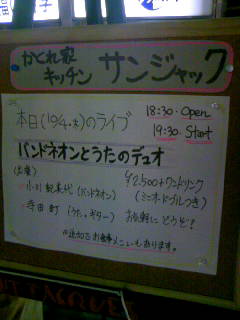 かくれ家
キッチン サンジャック
本日(10/4・木)のライブ
18:30・Open
19:30 Start
バンドネオンとうたのデュオ
(出演)
小川紀美代(バンドネオン)
寺田町(うた、ギター)
¥2,500+ワンドリンク
(ミニオードブルつき)
お気軽にどうぞ!
お食事メニューもあります。